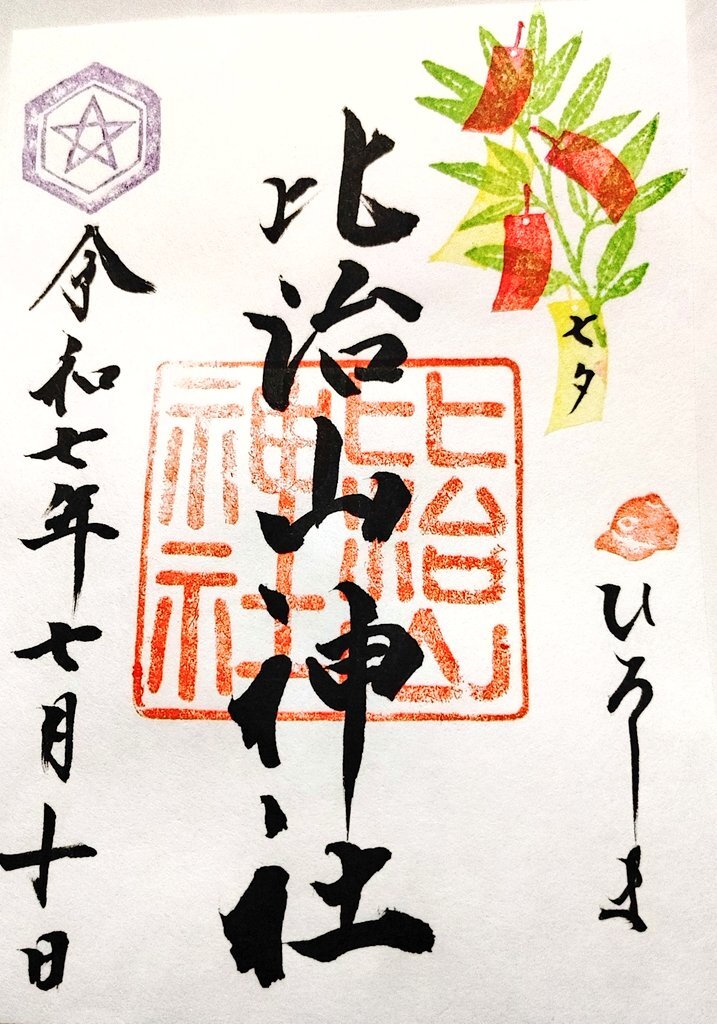 七夕
ひろしま
比治山神社
比治山神社
令和七年七月十日